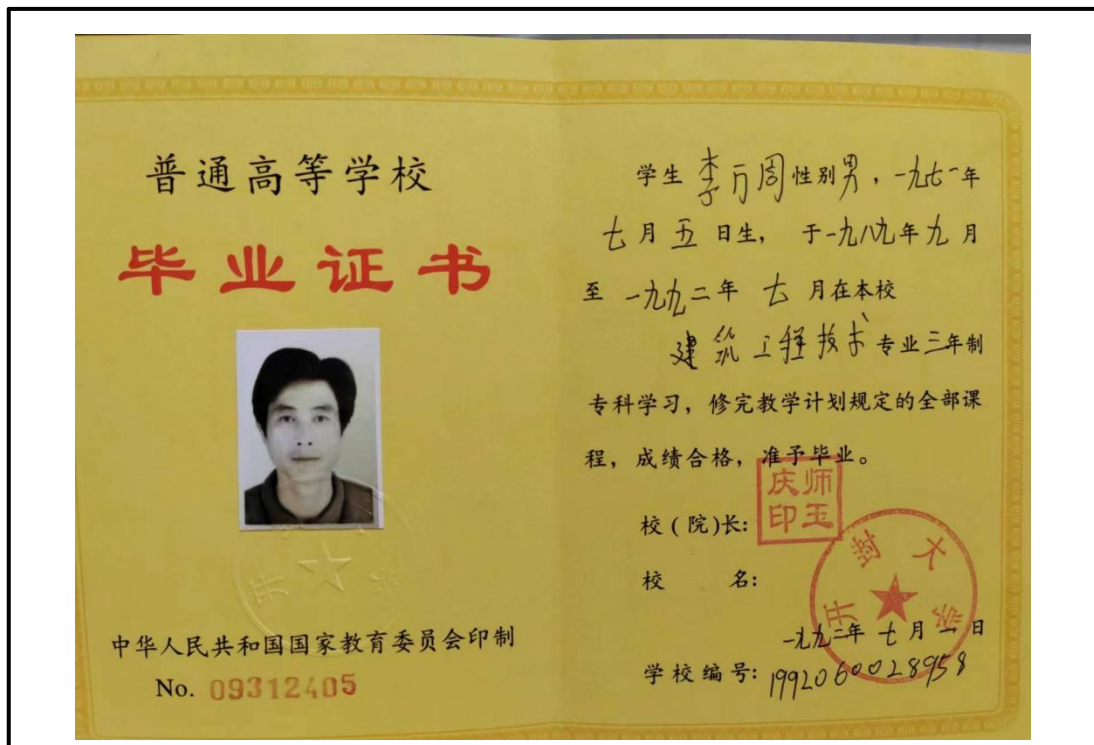 普通高等学校
毕业证书
开 大学
中华人民共和国国家教育委员会印制
No. 09312405
学生 李万周 性别 男，一九七一年
七月五日生，于一九八九年九月
至一九九二年七月在本校
建筑工程技术 专业三年制
专科学习，修完教学计划规定的全部课
程，成绩合格，准予毕业。
校(院)长：
师玉庆印
校 名：
开封大学
一九九二年七月一日
学校编号：1992060028958